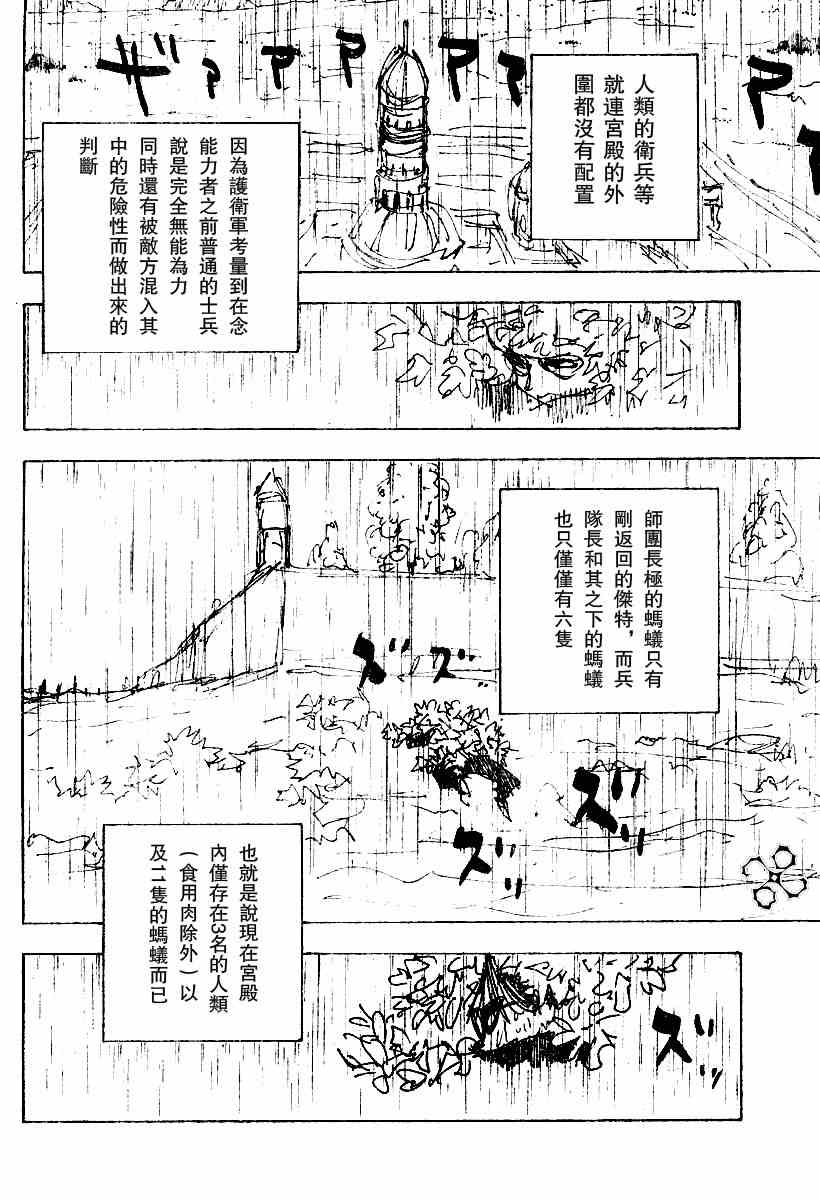 人類的衛兵等
就連宮殿的外
圍都沒有配置
ザァァァァァァァ
因為護衛軍考量到在念
能力者之前普通的士兵
說是完全無能為力
同時還有被敵方混入其
中的危險性而做出來的
判斷
師團長極的螞蟻只有
剛返回的傑特，而兵
隊長和其之下的螞蟻
也只僅僅有六隻
ズズ
ズズ
也就是說現在宮殿
內僅存在3名的人類
（食用肉除外）以
及11隻的螞蟻而已
ズ